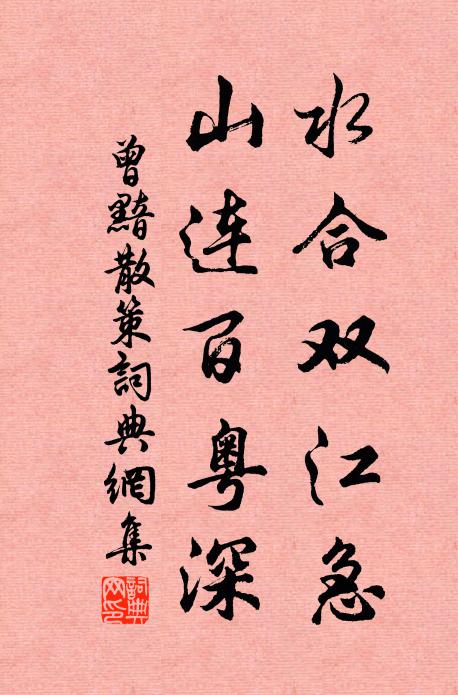 水合双江急
山连百粤深
曾黯散策詞典網集
詞典网印